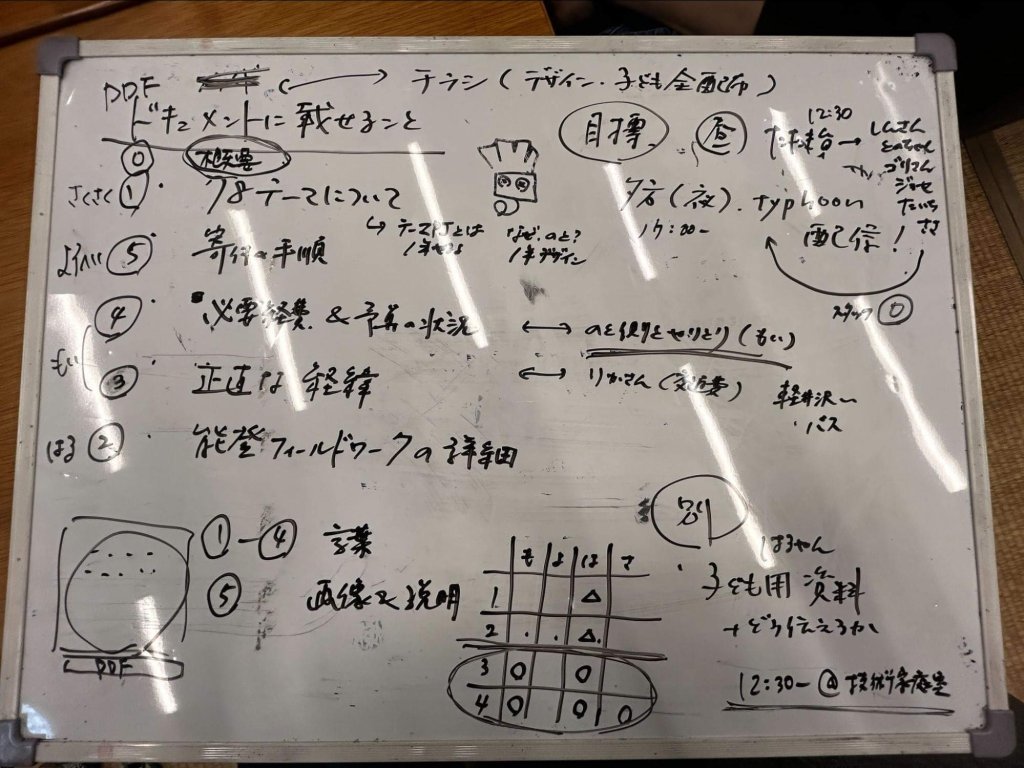 PDF
チラシ(デザイン・子ども全配布)
ドキュメントに載せること
⓪ 概要
さくさく ① クBテーマについて
→ テーマPJとは
なぜ、のと?
⑤ 寄付の手順
④ 必要経費 & 予算の状況 ↔ のと便りとやりとり(もい)
もい ③ 正直な経緯 ↔ りかさん(交通費)
はる ② 能登フィールドワークの詳細
目標
昼
12:30
たたき台 → しんさん
とのちゃん
ゴリさん
ジョセ
たいち
さき
夕方(夜). typhoon
17:00-
配信!
スタッフ ⓪
軽井沢〜
・バス
①-④ 言葉
⑤ 画像で説明
PDF
も よ は さ
1 △
2 . . △.
3 O O
4 O O O
別
はるやん
・子ども用資料
→どう伝えるか
12:30- @技術家庭室